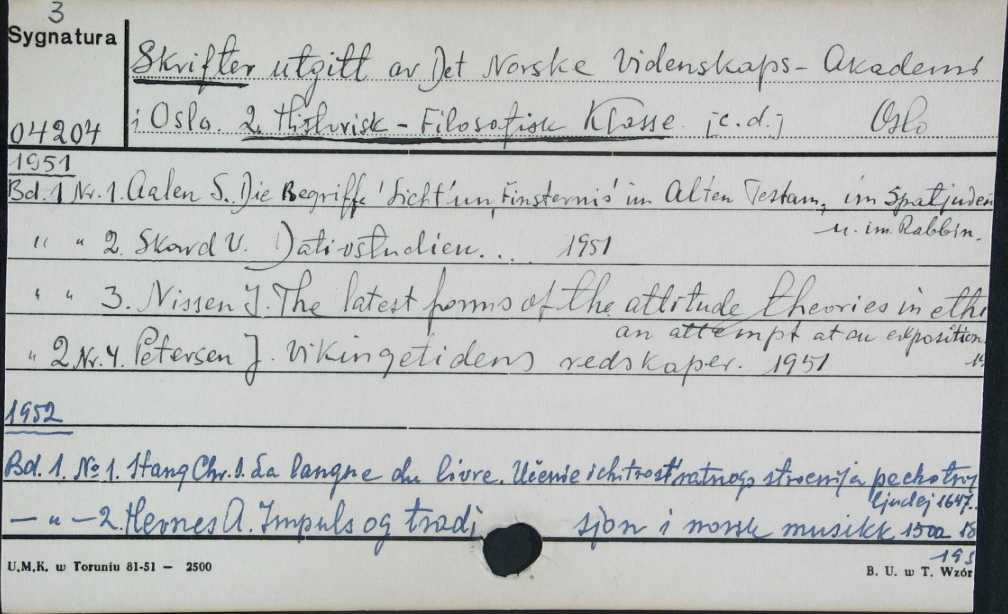 3
Sygnatura
Skrifter utgitt av Det Norske Videnskaps-Akademi
04204
i Oslo. 2. Historisk-Filosofisk Klasse. [c.d.] Oslo
1951
Bd. 1 Nr. 1. Aalen S. Die Begriffe 'Licht' un, Finsternis' im Alten Testam, im Spätjuden
u. im Rabbin.
" " 2. Skard V. Dativstudien.... 1951
" " 3. Nissen I. The latest forms of the attitude theories in eth
an attempt at an exposition.
" 2 Nr. 4. Petersen J. Vikingetidens redskaper. 1951
1952
Bd. 1. No 1. Stang Chr. S. La langue du livre. Učenie i chitrost' ratnogo stroenija pechotnyj
ljudej 1647.
— " — 2. Hernes A. Impuls og tradisjon i norsk musikk 1500 18
195
U.M.K. w Toruniu 81-51 — 2500
B. U. w T. Wzór